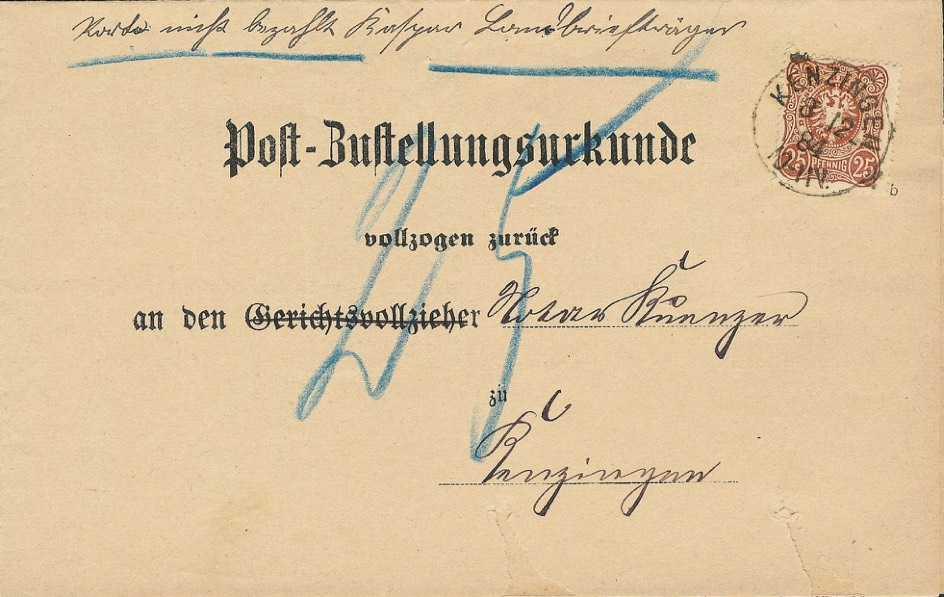 Porto nicht bezahlt Kaspar Landbriefträger
KENZINGEN
8 12 84
PFENNIG
25 25
b
Post-Zustellungsurkunde
25
vollzogen zurück
an den Gerichtsvollzieher Notar Kuenzer
zu
Kenzingen